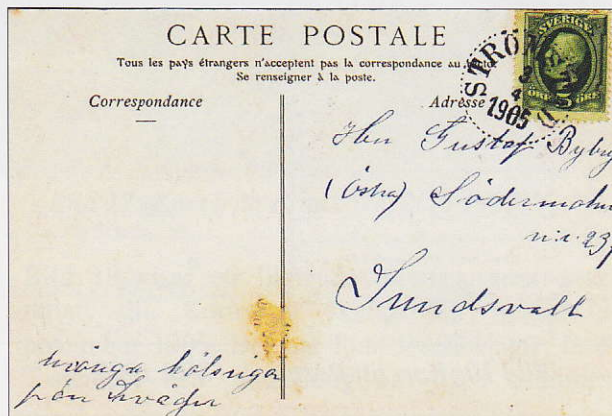 CARTE POSTALE
Tous les pays étrangers n'acceptent pas la correspondance au
Se renseigner à la poste.
Correspondance
Adresse
SVERIGE
5
ÖRE
STRÖM
4
1905
Gustaf
(Östra) Södermalm
n:r 237
Sundsvall
många hälsningar
från